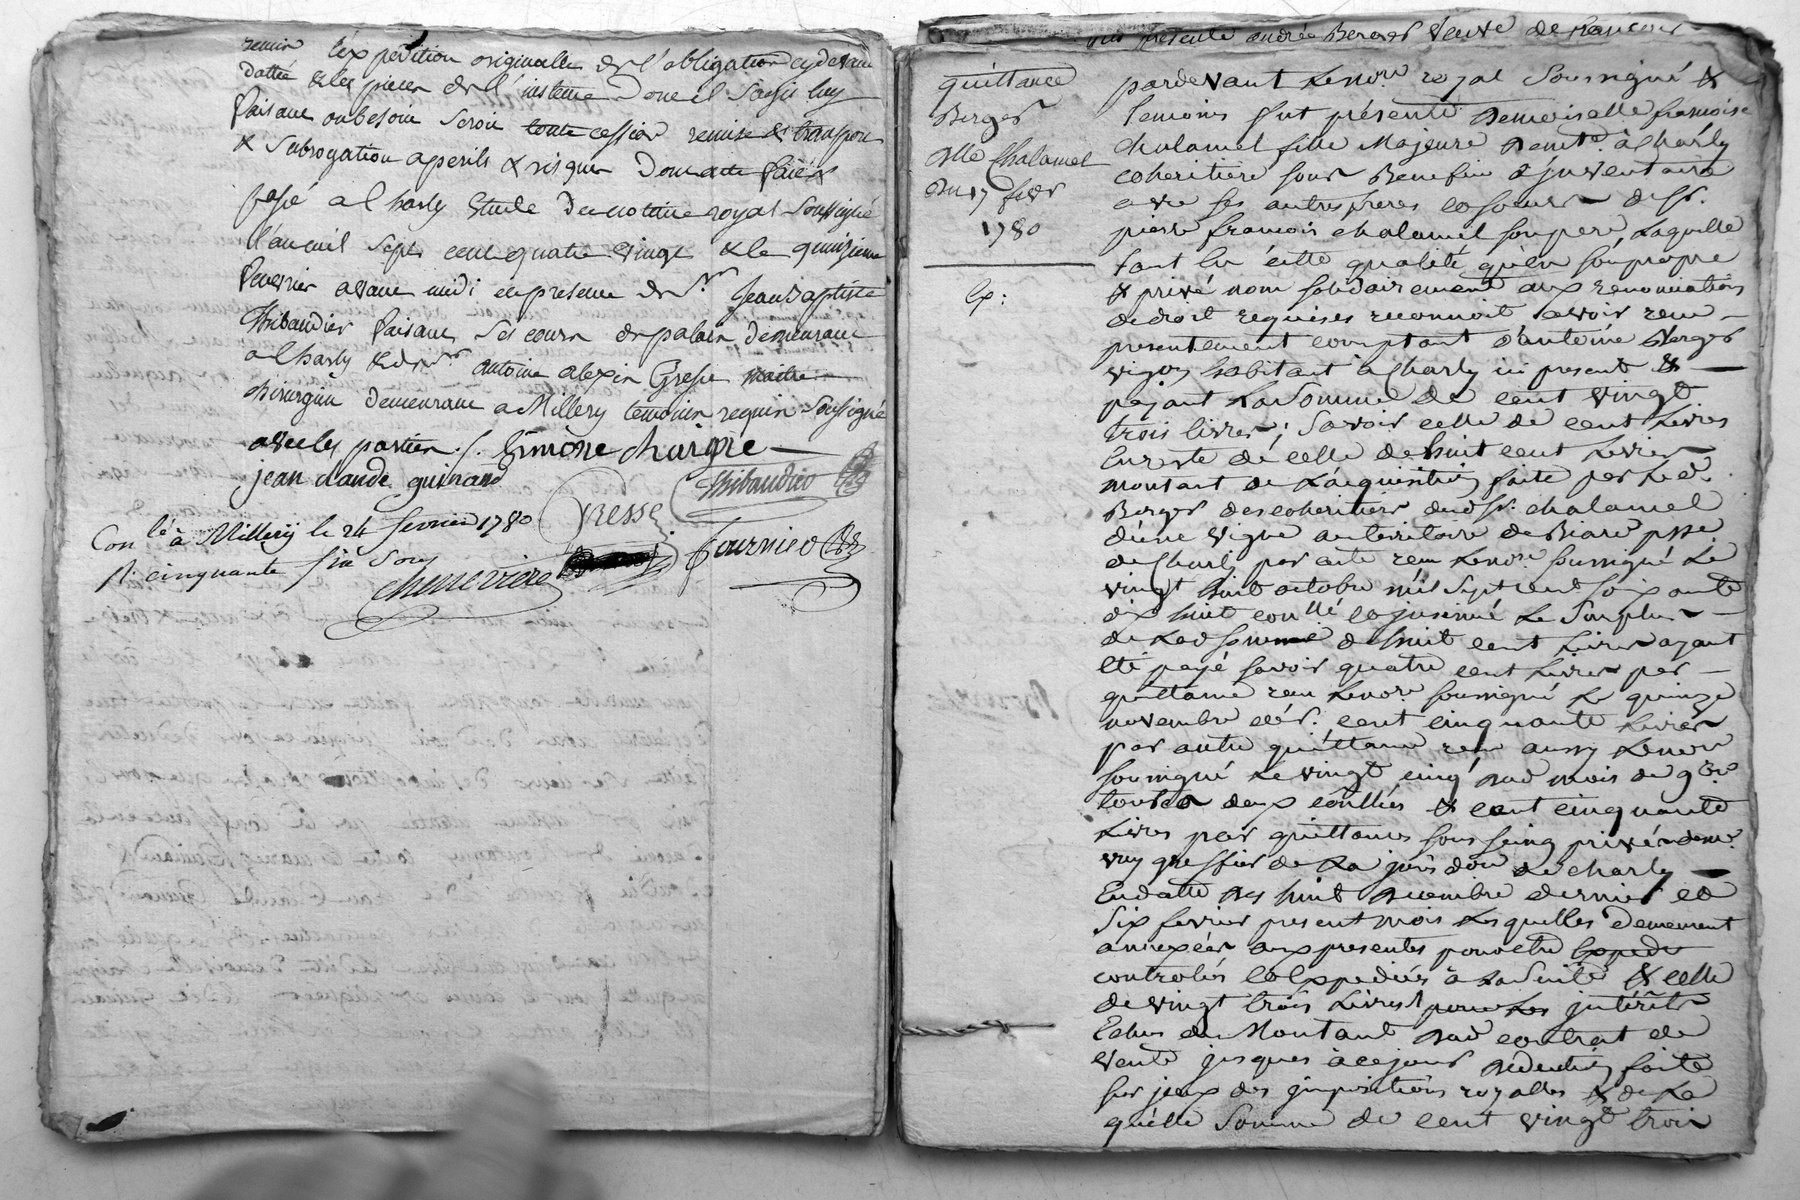 remis l'expedition originalle de l'obligation cydevant
dattée & les pieces de l'instance dont il s'agit luy
faisant au besoin seroit toute cession remise & transport
& subrogation a perils & risques dont acte fait &
passé a Charly Etude du notaire royal soussigné
l'an mil sept cent quatre vingt & le quinzieme
fevrier avant midi en presence de Sr Jean Baptiste
Thibaudier faisant ses cours de palais demeurant
a Charly & de sr antoine alexis Gresse maitre
chirurgien demeurant a Millery temoins requis soussignés
avec les parties ./. Simone charpie
jean claude guinand
Thibaudier
Gresse
Fournier
Conlé à Millery le 24 fevrier 1780
R. cinquante six sous
Chenevrière
in presente andrée Berger veuve de francois
quittance
Berger
Dlle Chalamel
du 17 fevr
1780
Ex:
pardevant Le nore royal soussigné &
temoins fut présente Demoiselle francoise
chalamel fille Majeure Demte à Charly
coheritiere sous Benefice d'inventaire
avec ses autres freres & soeurs de Sr.
pierre francois chalamel son pere Laquelle
tant en cette qualité qu'en son propre
& privé nom solidairement aux renonciations
de droit requises reconnoit avoir recu
presentement comptant d'antoine Berger
vigon habitant à Charly ici present &
payant La Somme de cent vingt
trois livres; savoir celle de cent Livres
En reste de celle de huit cent Livres
montant de L'acquisition faite par Led.
Berger des coheritiers dud Sr. chalamel
d'une vigne au territoire de Biare psse
de Charly par acte recu Le nore soussigné Le
vingt huit octobre mil sept cent soixante
dix huit conllé & insinué Le surplus
de Lad somme de huit cent Livres ayant
été payé savoir quatre cent Livres par
quittance recu Le nore soussigné Le quinze
novembre der. cent cinquante Livres
par autre quittance recu aussy Le nore
soussigné Le vingt cinq dud mois de 9bre
toutes deux conllées & cent cinquante
Livres par quittances sous seing privé de me
vuy greffier de La jurisdon de charly
En datte des huit decembre dernier et
six fevrier present mois Lesquelles demeurent
annexées aux presentes pour etre Expedi
controlés & Expediées à La suite & celle
de vingt trois Livres pour Les intérêts
Echus du Montant dud contrat de
vente jusques à ce jour deduction faite
sur jceux des impositions royalles & de La
quelle somme de cent vingt trois